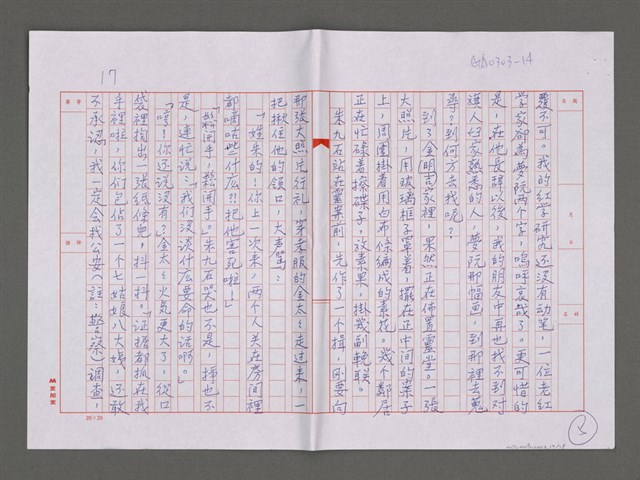 GA0303-14
17
覆不可。我的紅学研究还没有动笔，一位老紅
学家卻為夢阮两个字，嗚呼哀哉了。更可惜的
是，在他長辞以後，我的朋友中再也找不到对
道人好家熟悉的人，夢阮那幅画，到那裡去蒐
尋？到何方去找呢？
到了金明吉家裡，果然正在佈置靈堂。一張
大照片，用玻璃框子罩着，擺在正中间的菓子
上，周圍掛着用白布條編成的素花。幾个鄰居
正在忙碌着搽碟子，放素菓，掛幾副輓联。
朱九石站在靈菓前，先作了一个揖，刚要向
那张大照片行礼，穿孝服的金太々走过来，一
把揪住他的領口，大声罵：
「姓朱的！你上一次来，两个人关在房间裡
都嘀咕些什庅？把他害死啦！」
「鬆開手，鬆開手。」朱九石哭也不是，掙也不
是，連忙说：「我们沒谈什庅要命的话啊。」
「哼！你还说沒有？」金太々火氣更大了，從口
袋裡掏出一張紙條來，抖一抖。「证据都抓在我
手裡啦，你们包佔了一个七姑娘八大嫂，还敢
不承認，我一定会找公安（註：警察）調查，
20×20